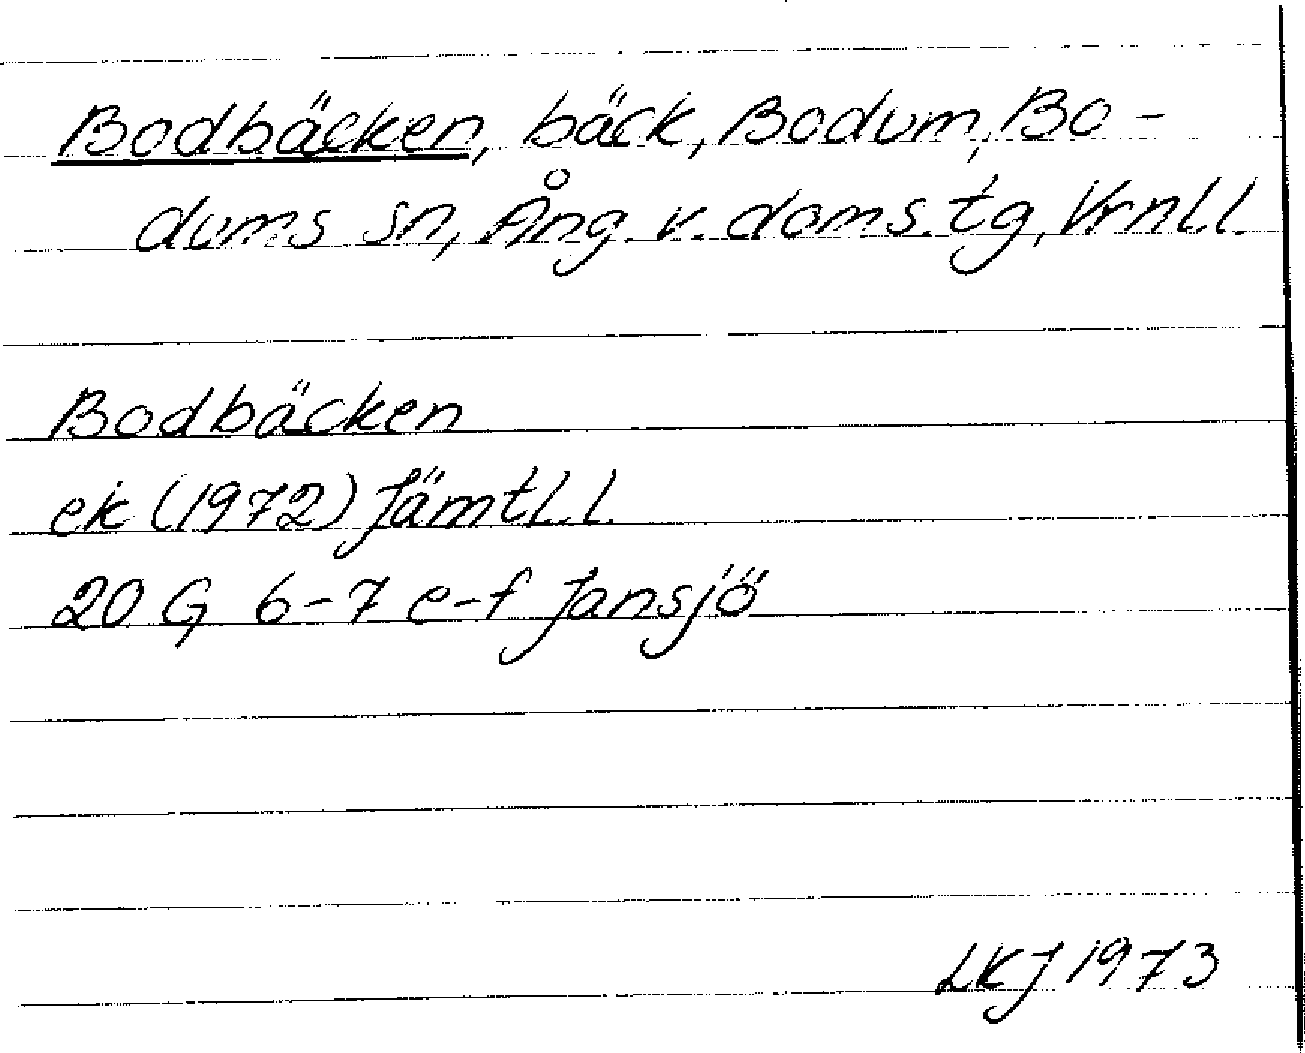 Bodbäcken, bäck, Bodum, Bo-
dums sn, Ång. v. doms. tg, Vrnl.l.
Bodbäcken
ek (1972) Jämtl.l.
20 G 6-7 e-f Jansjö
LKJ 1973